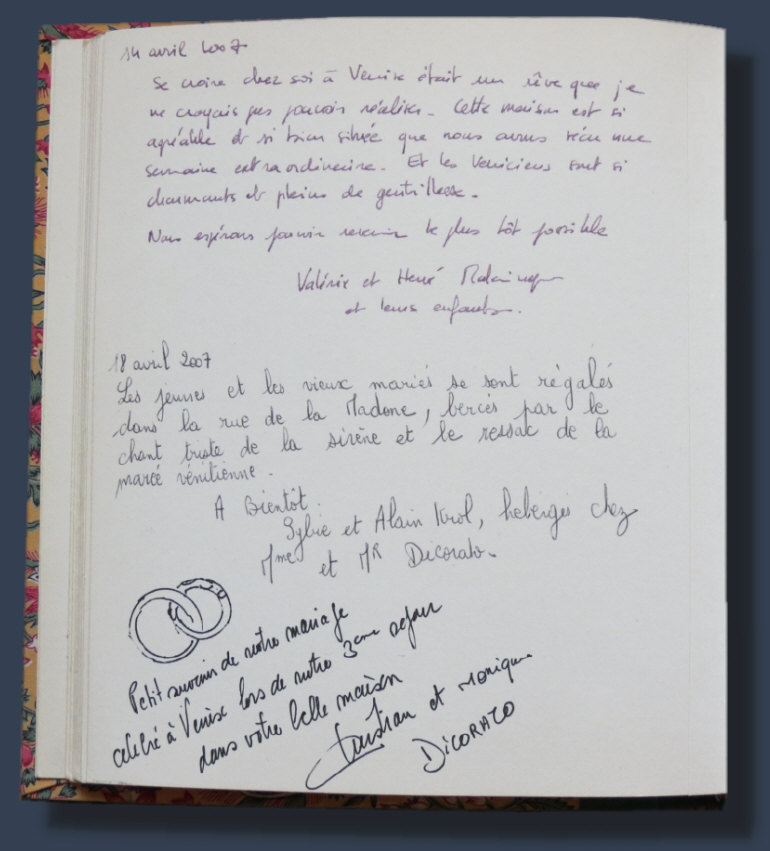 14 avril 2007
Se croire chez soi à Venise était un rêve que je
ne croyais pas pouvoir réaliser. Cette maison est si
agréable et si bien située que nous avons vécu une
semaine extraordinaire. Et les Vénitiens sont si
charmants et pleins de gentillesse.
Nous espérons pouvoir revenir le plus tôt possible
Valérie et Hervé
et leurs enfants.
18 avril 2007
Les jeunes et les vieux mariés se sont régalés
dans la rue de la Madone, bercés par le
chant triste de la sirène et le ressac de la
marée vénitienne.
A Bientôt.
Sylvie et Alain Krol, hebergés chez
Mme et MR Dicorato.
Petit souvenir de notre mariage
celebré à Venise lors de notre 3eme sejour
dans votre belle maison
Christian et Monique
DICORATO